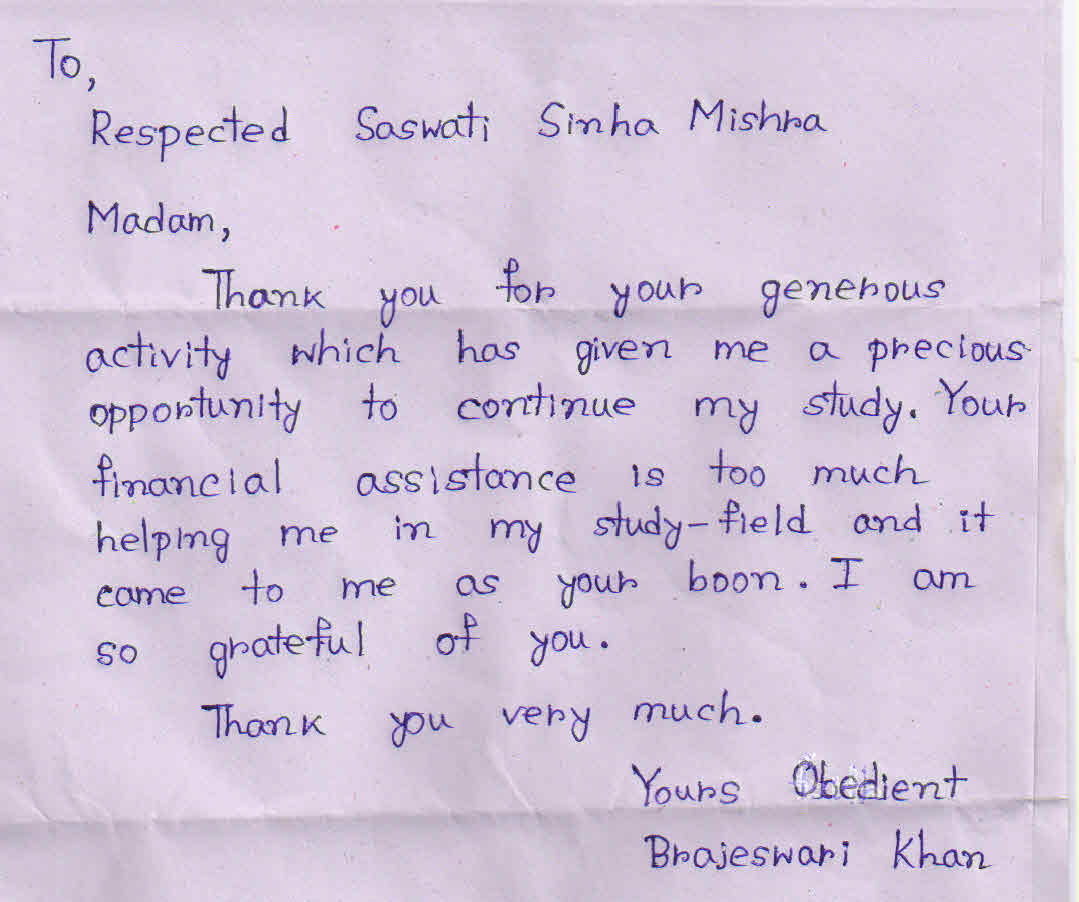 To,
Respected Saswati Sinha Mishra
Madam,
Thank you for your generous
activity which has given me a precious
opportunity to continue my study. Your
financial assistance is too much
helping me in my study-field and it
came to me as your boon. I am
so grateful of you.
Thank you very much.
Yours Obedient
Brajeswari Khan